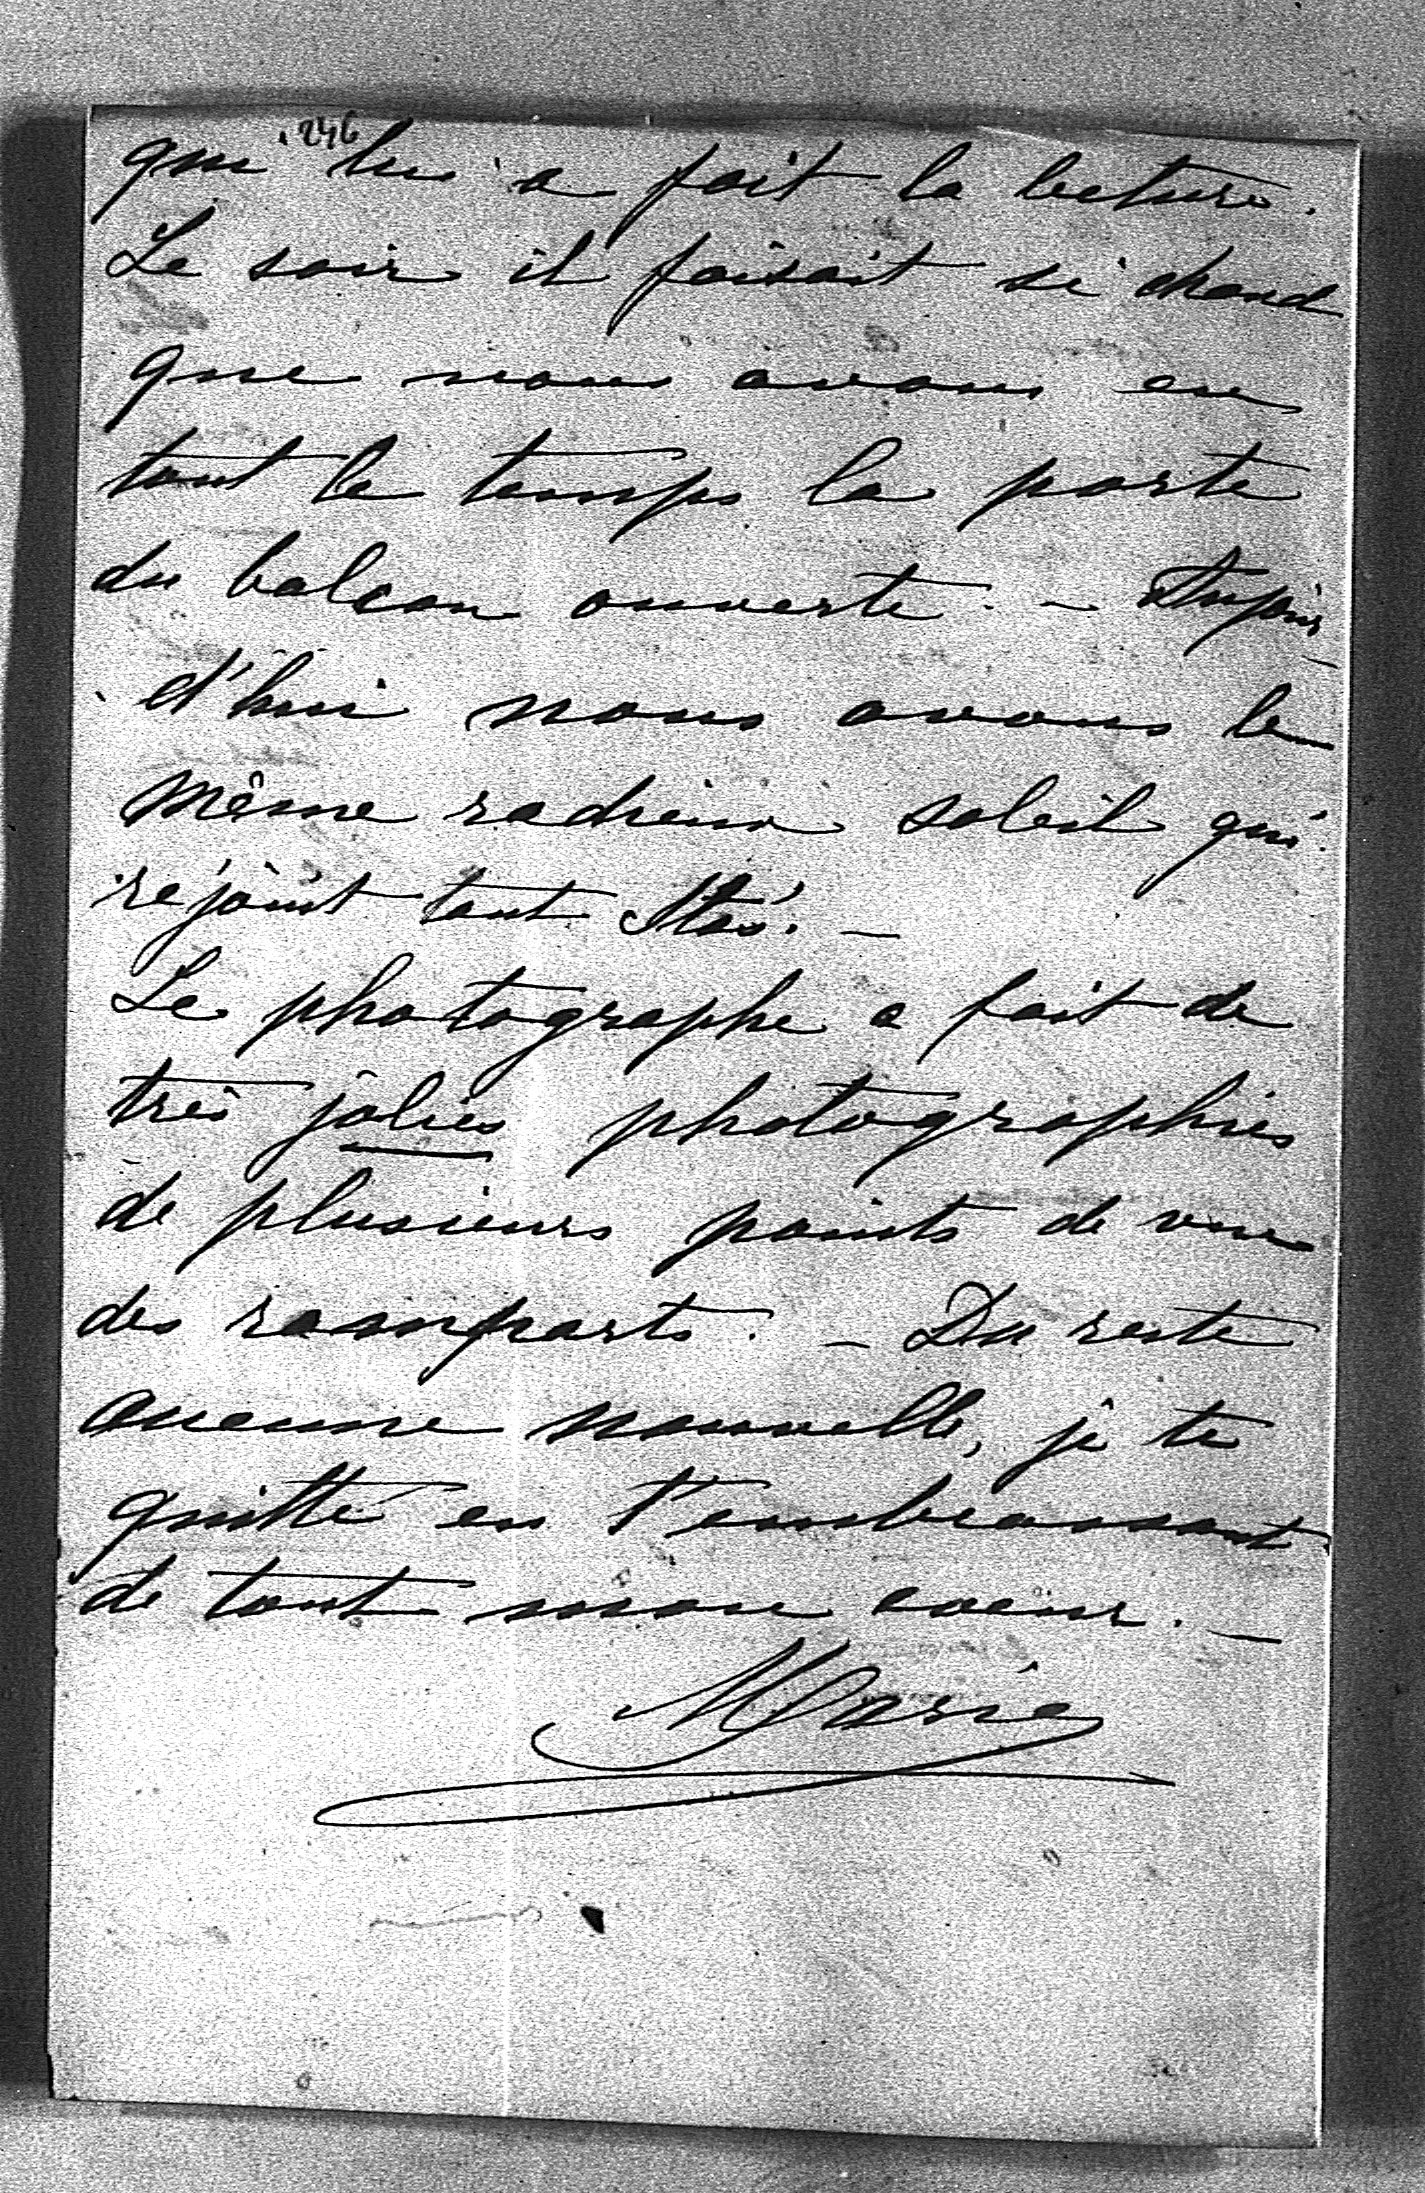 246
qui lui a fait la lecture.
Le soir il faisait si chaud
que nous avons eu
tout le temps la porte
du balcon ouverte. - Aujour-
d'hui nous avons le
même radieux soleil qui
rejouit tout Stas. -
Le photographe a fait de
très jolies photographies
de plusieurs points de vue
des ramparts. - Du reste
aucune nouvelle, je te
quitte en t'embrassant
de tout mon coeur. -
Marie